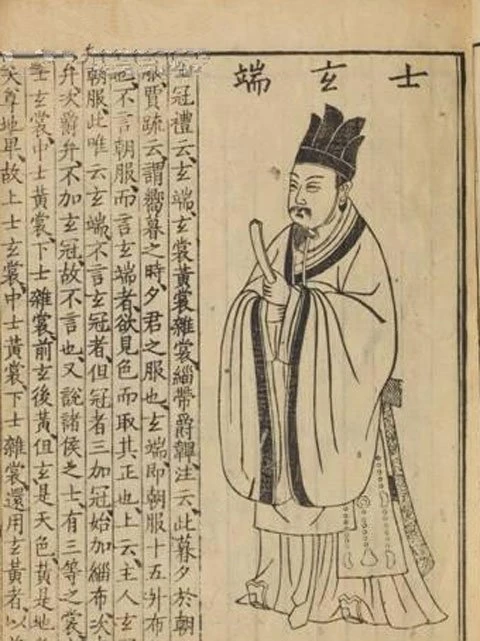 士玄端
士冠禮云玄端玄裳黃裳雜裳緇帶爵韠注云此暮夕於朝
服賈疏云謂嚮暮之時夕君之服也玄端即朝服十五升布
也不言朝服而言玄端者欲見色而取其正也上云主人玄
朝服此唯云玄端不言玄冠者但冠者三加冠始加緇布次
弁次爵弁不加玄冠故不言也又說諸侯之士有三等之裳
上士玄裳中士黃裳下士雜裳前玄後黃但玄是天色黃是地
天尊地卑故上士玄裳中士黃裳下士雜裳還用玄黃者以